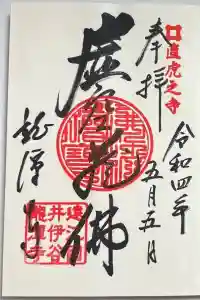 直虎之寺
奉拝
令和四年
五月五日
虚空蔵佛
龍潭寺
遠江国
井伊谷
龍潭寺